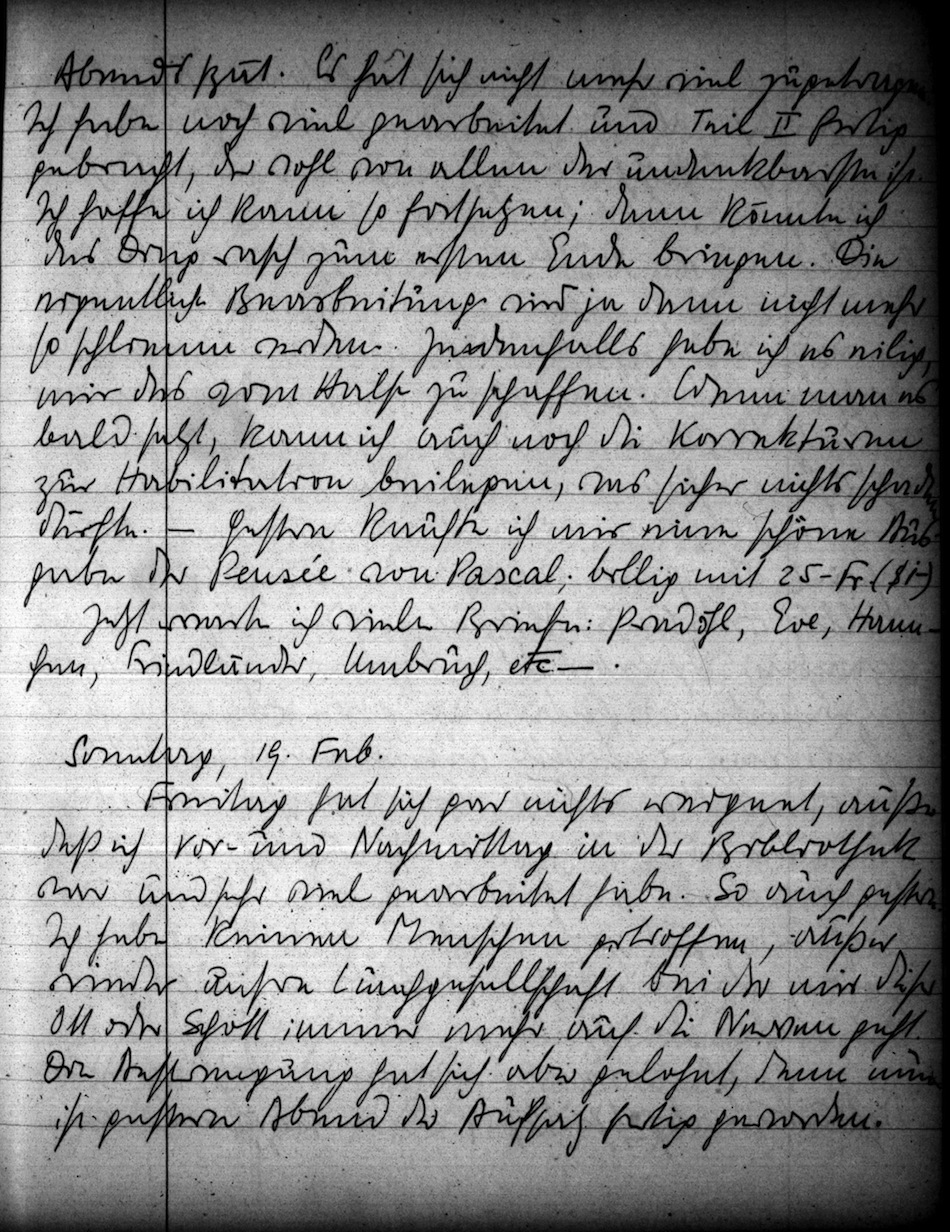 Abends spät. Es hat sich nicht mehr viel zugetragen
Ich habe noch viel gearbeitet und Teil II fertig
gebracht, der wohl von allen der undankbarste ist.
Ich hoffe ich kann so fortsetzen; dann könnte ich
das Ding rasch zum ersten Ende bringen. Die
eigentliche Bearbeitung wird ja dann nicht mehr
so schlimm werden. Jedenfalls habe ich es eilig,
mir das vom Halse zu schaffen. Wenn man es
bald setzt, kann ich auch noch die Korrekturen
zur Habilitation beilegen, was sicher nichts schaden
dürfte. — Gestern kaufte ich mir eine schöne Aus-
gabe der Pensée von Pascal, billig mit 25-Fr. ($1-)
Jetzt warte ich vieler Briefe: Predöhl, Eve, Hann-
chen, Friedländer, Umbruch, etc — .
Sonntag, 19. Feb.
Freitag hat sich gar nichts ereignet, außer
daß ich Vor- und Nachmittag in der Bibliothek
war und sehr viel gearbeitet habe. So auch gestern.
Ich habe keinen Menschen getroffen, außer
wieder unsere Lunchgesellschaft bei der mir dieser
Ott oder Schott immer mehr auf die Nerven geht.
Die Anstrengung hat sich aber gelohnt, denn nun
ist gestern Abend der Aufsatz fertig geworden.